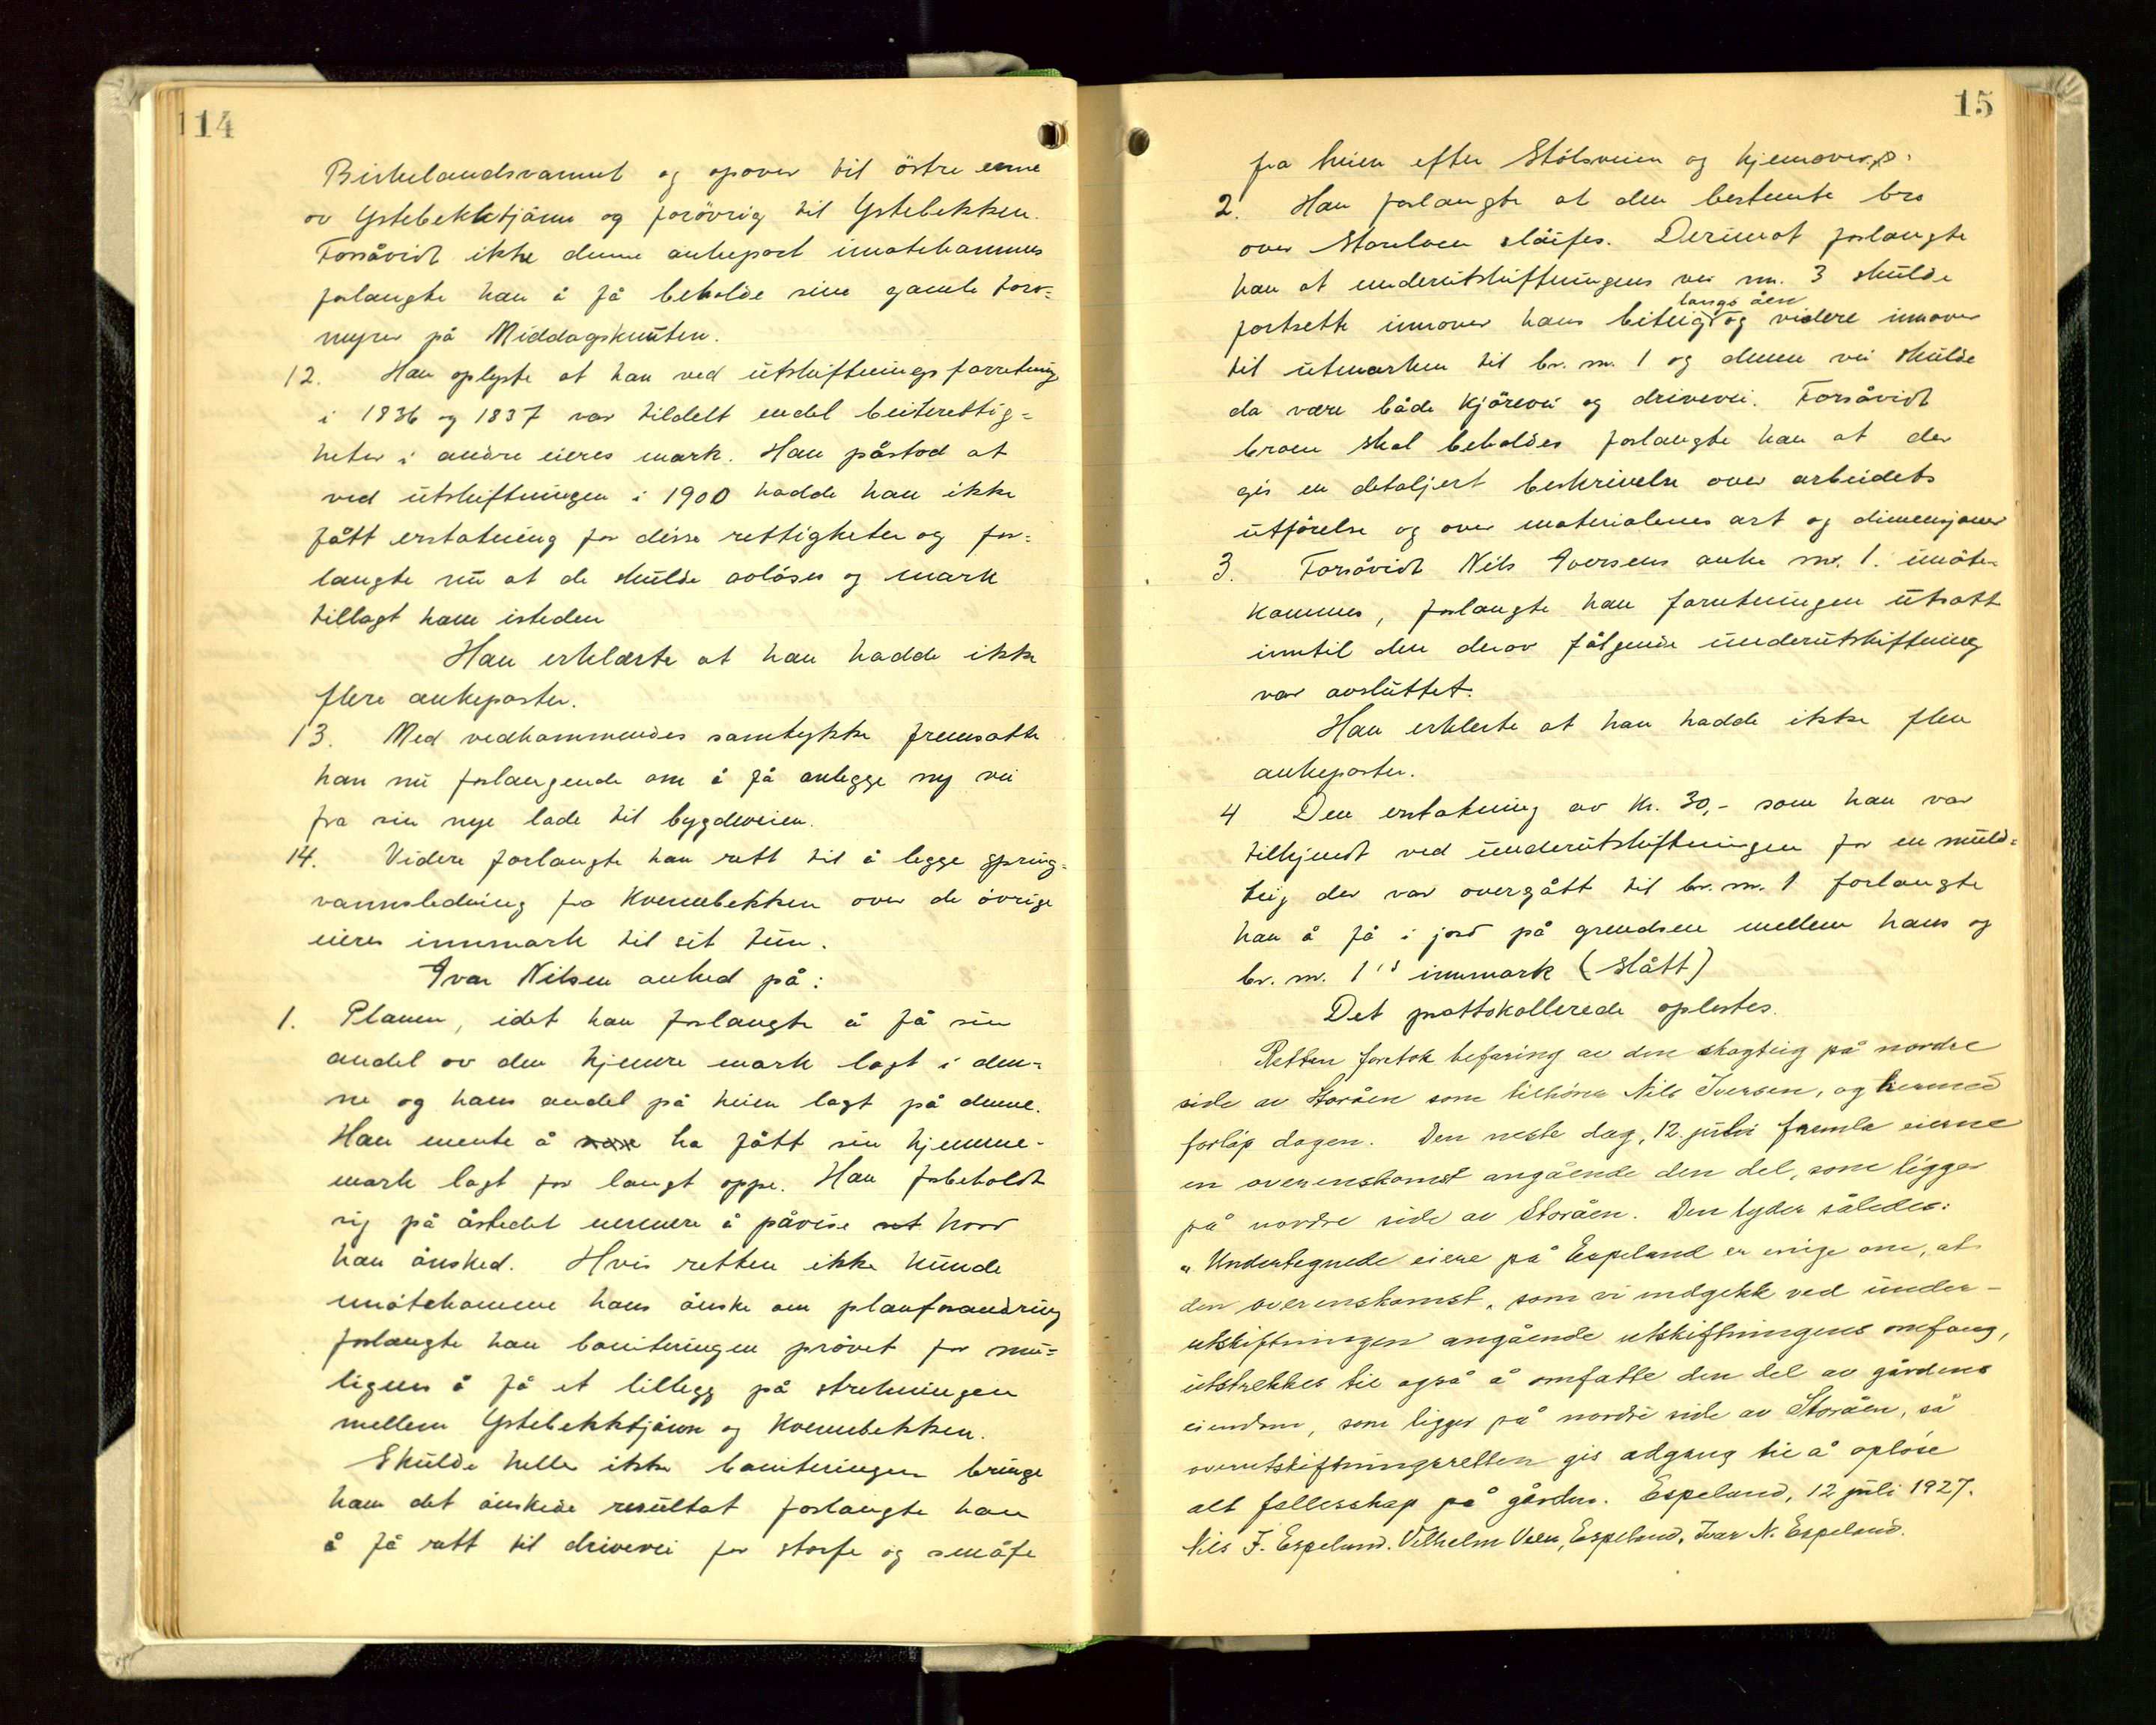 14
Birkelandsvannet og opover til östre enne
av Ystebekktjönn og forövrig til Ystebekken.
Forsåvidt ikke denne ankepost imötekommes
forlangte han å få beholde sine gamle torv=
myrer på Middagsknuten.
12. Han oplyste at han ved utskiftningsforretning
i 1836 og 1837 var tildelt endel beiterettig=
heter i andre eieres mark. Han påstod at
ved utskiftningen i 1900 hadde han ikke
fått erstatning for disse rettigheter og for=
langte nu at de skulde avlöses og mark
tillagt ham isteden
Han erklærte at han hadde ikke
flere ankeposter.
13. Med vedkommendes samtykke fremsatte
han nu forlangende om å få anlegge ny vei
fra sin nye lade til bygdeveien.
14. Videre forlangte han rett til å legge spring=
vannsledning fra Kvernbekken over de övrige
eieres innmark til sit tun.
Ivar Nilsen anked på:
1. Planen, idet han forlangte å få sin
andel av den hjemre mark lagt i den=
ne og hans andel på heien lagt på denne.
Han mente å ha fått sin hjemme-
mark lagt for langt oppe. Han forbeholdt
sig på åstedet nermere å påvise hvor
han önsked. Hvis retten ikke kunde
imötekomme hans önske om planforandring
forlangte han boniteringen prövet for mu=
ligens å få et tillegg på strekningen
mellem Ystebekktjönn og Kvernbekken.
Skulde heller ikke boniteringen bringe
ham det önskede resultat forlangte han
å få rett til drivevei for storfe og småfe
15
fra heien efter Stölsveien og hjemover.
2. Han forlangte at den bestemte bro
over Storelven slöifes. Derimot forlangte
han at underutskiftningens vei nr. 3 skulde
langs åen
fortsette innover hans beiteig og videre innover
til utmarken til br. nr. 1 og denne vei skulde
da være både kjörevei og drivevei. Forsåvidt
broen skal beholdes forlangte han at der
gis en detaljert beskrivelse over arbeidets
utförelse og over materialenes art og dimensjoner
3. Forsåvidt Nils Iversens anke nr. 1. imöte-
kommes, forlangte han forretningen utsatt
inntil den derav fölgende underutskiftning
var avsluttet.
Han erklerte at han hadde ikke flere
ankeposter.
4 Den erstatning av kr. 30,- som han var
tilkjendt ved underutskiftningen for en muld=
teig der var overgått til br. nr. 1 forlangte
han å få i jord på grendsen mellem hans og
br. nr. 1's innmark (slått)
Det prottokollerede oplestes.
Retten foretok befaring av den skogteig på nordre
side av Storåen som tilhörer Nils Iversen, og hermed
forlöp dagen. Den neste dag, 12. juli fremla eierne
en overenskomst angående den del, som ligger
på nordre side av Storåen. Den lyder således:
"Undertegnede eiere på Espeland er enige om, at
den overenskomst, som vi indgikk ved under-
utskiftningen angående utskiftningens omfang,
utstrekkes til også å omfatte den del av gårdens
eiendom, som ligger på nordre side av Storåen, så
overutskiftningsretten gis adgang til å oplöse
alt fellesskap på gården. Espeland, 12 juli 1927.
Nils I. Espeland. Vilhelm Espeland, Ivar N. Espeland.